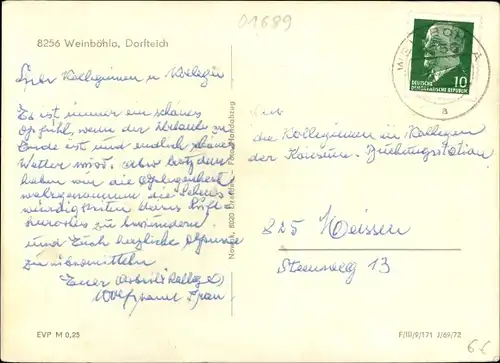 01689
8256 Weinböhla, Dorfteich
Liebe Kolleginnen u. Kollegen
Es ist immer ein schönes
Gefühl, wenn der Urlaub zu
Ende ist und endlich schönes
Wetter wird. Aber trotzdem
haben wir die Gelegenheit
wahrgenommen die Sehens-
würdigkeiten dieses
zu bewundern
und Euch herzliche Grüsse
zu übermitteln
Euer Arbeitskollege
Wolfgang
EVP M 0,25
Novoky, 8020 Dresden – Foto: Handabzug
DEUTSCHE
DEMOKRATISCHE REPUBLIK
10
a
An
die Kolleginnen u. Kollegen
der Konsum-
825 Meissen
Steinweg 13
F/III/9/171 J/69/72
66